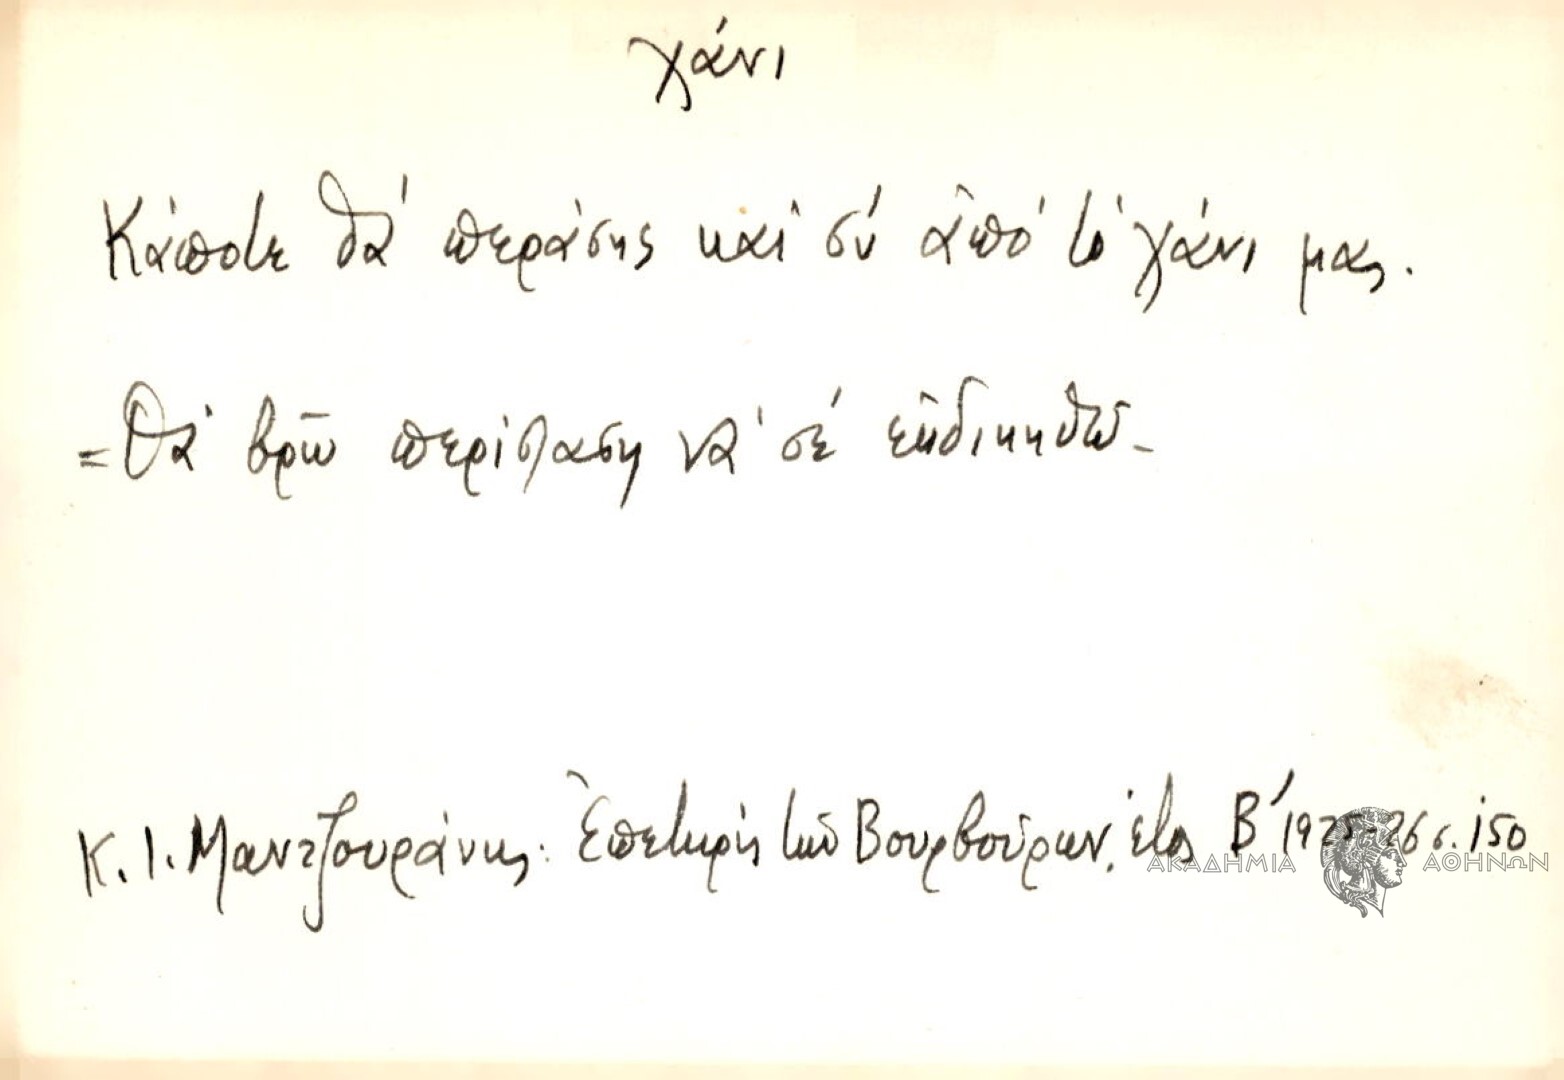 χάνι
Κάποτε θά περάσης καί σύ ἀπό τό χάνι μας.
=Θά βρῶ περίσταση νά σέ ἐκδικηθῶ-
Κ. Ι. Μαντζουράνης: Ἐπετηρίς τῶν Βουρβούρων, ἔτος Β΄ 1925-26 σ. 150
ΑΚΑΔΗΜΙΑ ΑΘΗΝΩΝ